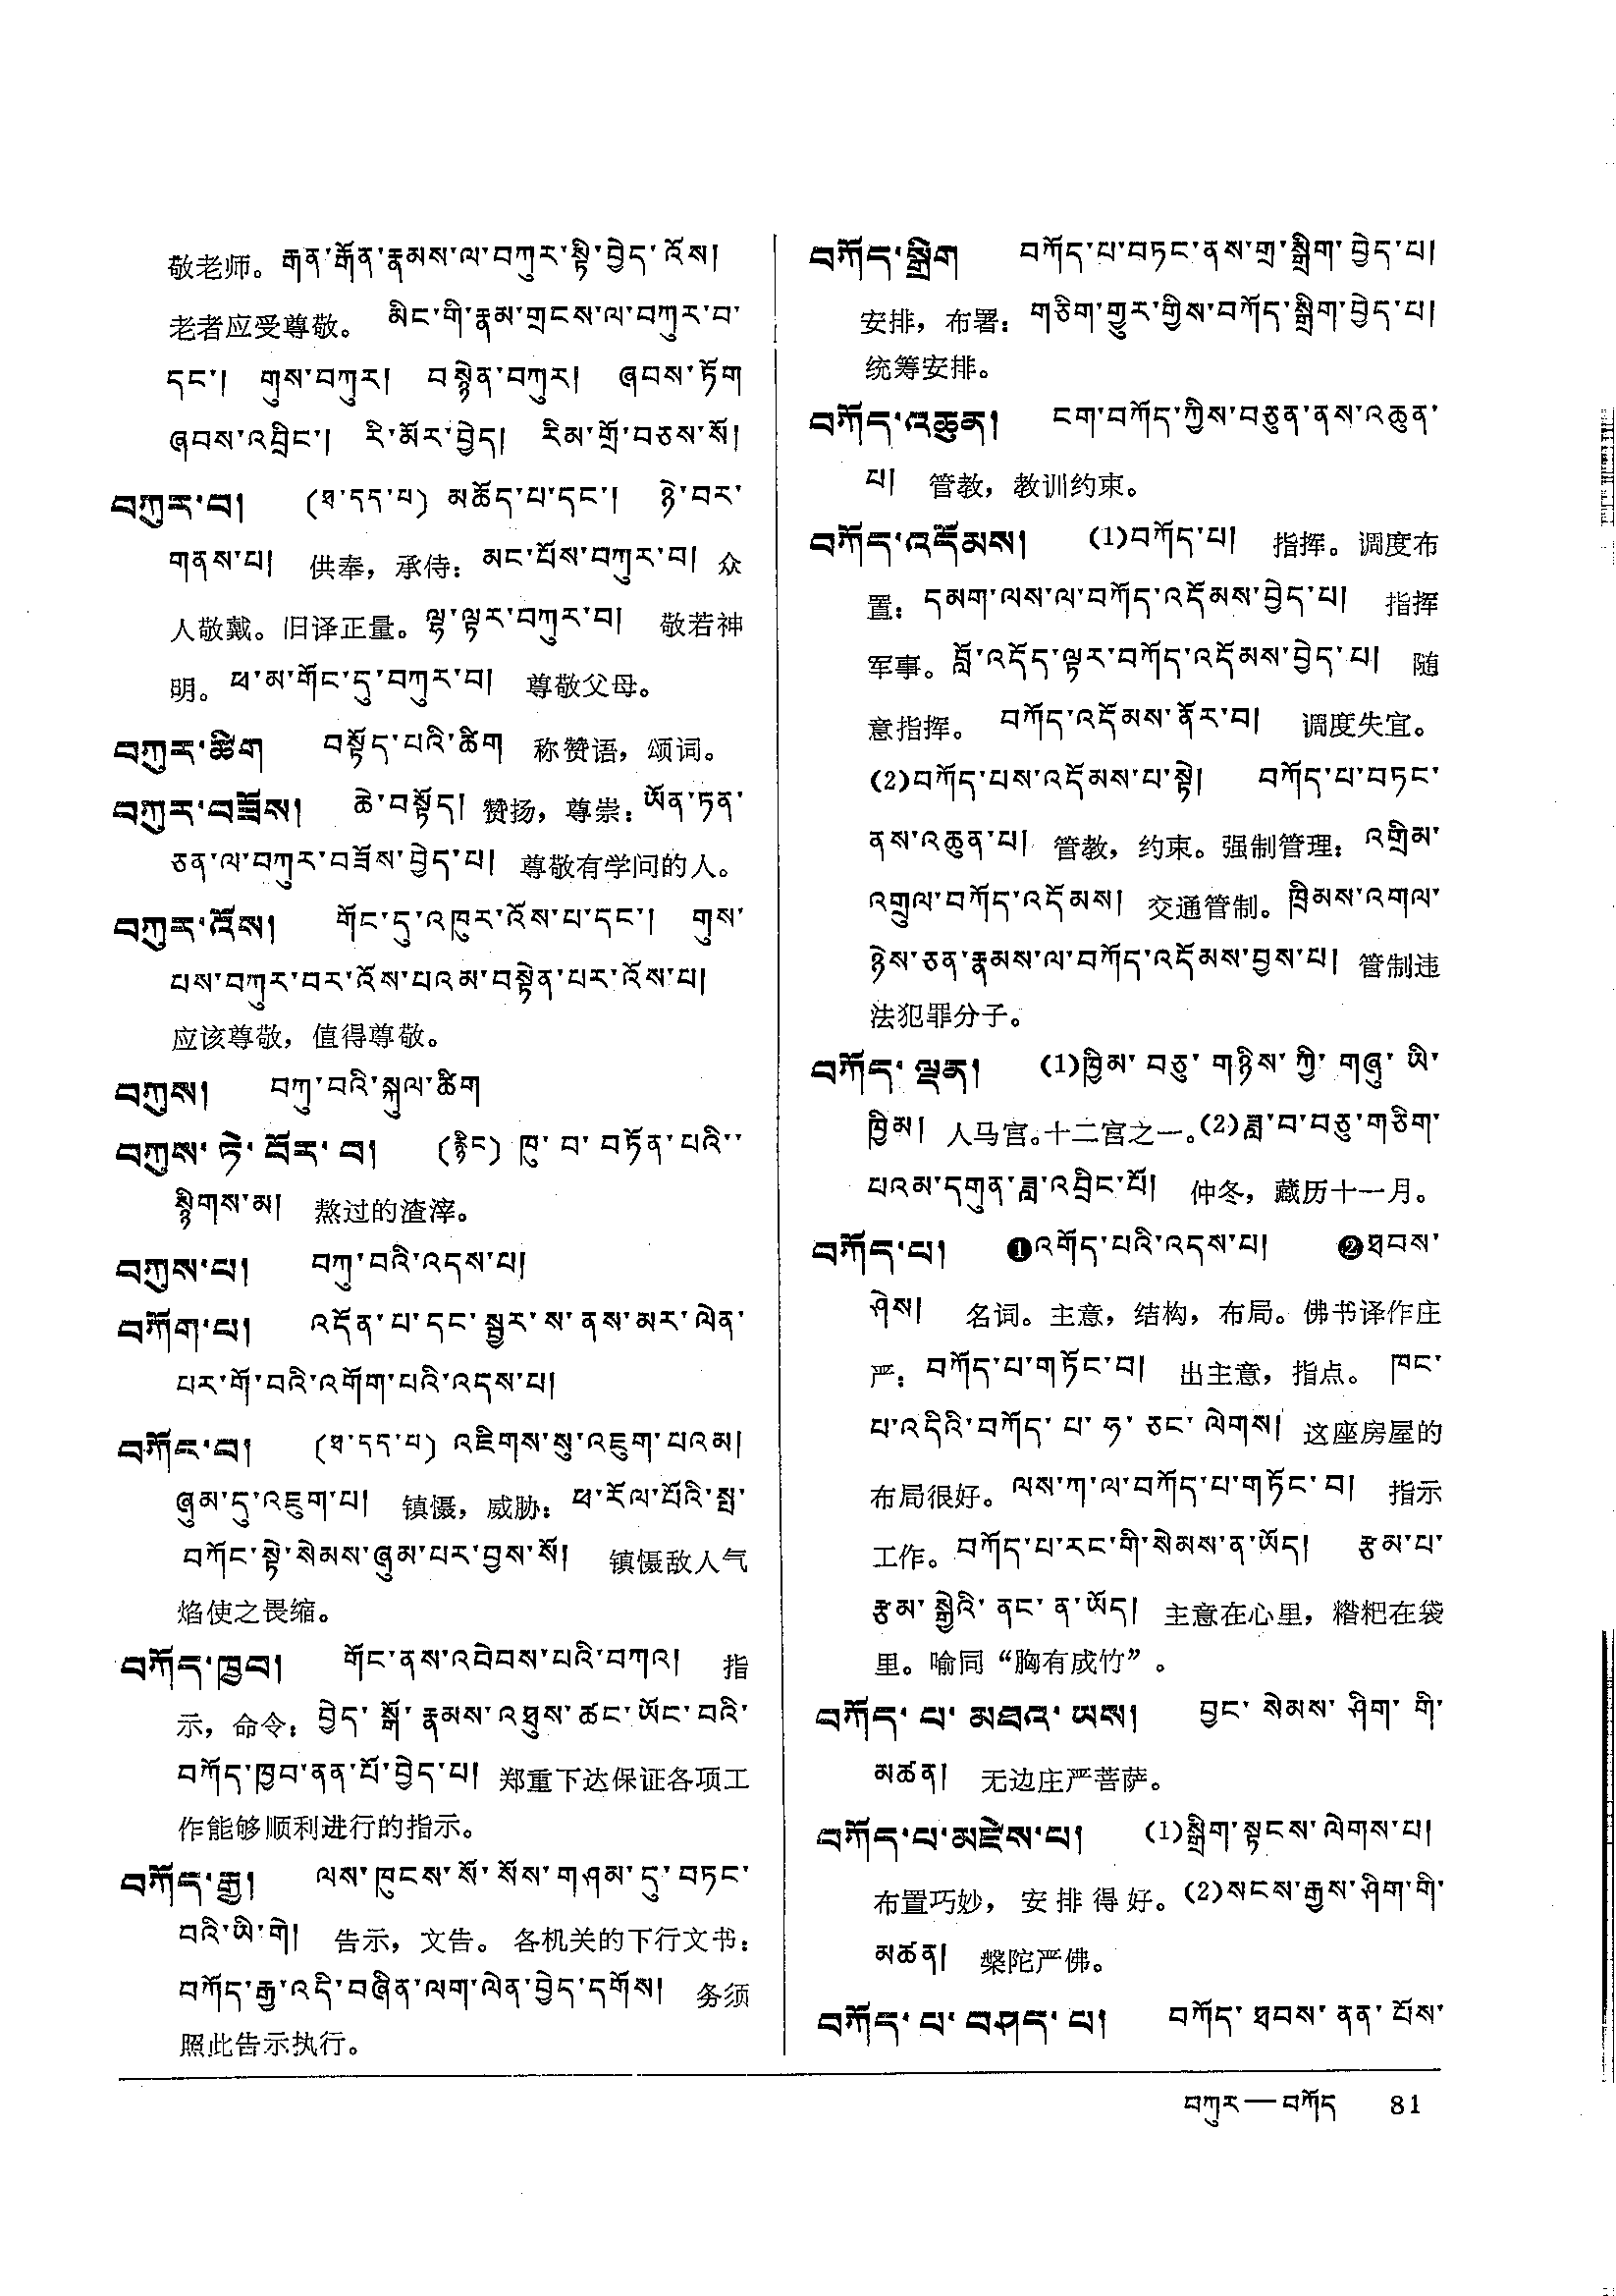 敬老师。རྒན་རྒོན་རྣམས་ལ་བཀུར་སྟི་བྱེད་འོས།
老者应受尊敬。 མིང་གི་རྣམ་གྲངས་ལ་བཀུར་བ་
དང༌། གུས་བཀུར། བསྙེན་བཀུར། ཞབས་ཏོག
ཞབས་འབྲིང༌། རི་མོར་བྱེད། རིམ་གྲོ་བཅས་སོ།
བཀུར་བ། (ཐ་དད་པ) མཆོད་པ་དང༌། ཉེ་བར་
གནས་པ། 供奉，承侍：མང་པོས་བཀུར་བ། 众
人敬戴。旧译正量。ལྷ་ལྟར་བཀུར་བ། 敬若神
明。ཕ་མ་གོང་དུ་བཀུར་བ། 尊敬父母。
བཀུར་ཚིག བསྟོད་པའི་ཚིག 称赞语，颂词。
བཀུར་བཟོས། ཆེ་བསྟོད། 赞扬，尊崇：ཡོན་ཏན་
ཅན་ལ་བཀུར་བཟོས་བྱེད་པ། 尊敬有学问的人。
བཀུར་འོས། གོང་དུ་འཁུར་འོས་པ་དང༌། གུས་
པས་བཀུར་བར་འོས་པའམ་བསྟེན་པར་འོས་པ།
应该尊敬，值得尊敬。
བཀུས། བཀུ་བའི་སྐུལ་ཚིག
བཀུས་ཏེ་བོར་བ། (རྙིང) ཁུ་བ་བཏོན་པའི་
སྙིགས་མ། 熬过的渣滓。
བཀུས་པ། བཀུ་བའི་འདས་པ།
བཀོག་པ། འདོན་པ་དང་སྦྱར་ས་ནས་མར་ལེན་
པར་གོ་བའི་འགོག་པའི་འདས་པ།
བཀོང་བ། (ཐ་དད་པ) འཇིགས་སུ་འཇུག་པའམ།
ཞུམ་དུ་འཇུག་པ། 镇慑，威胁：ཕ་རོལ་པོའི་སྤ་
བཀོང་སྟེ་སེམས་ཞུམ་པར་བྱས་སོ། 镇慑敌人气
焰使之畏缩。
བཀོད་ཁྱབ། གོང་ནས་འབེབས་པའི་བཀའ། 指
示，命令：བྱེད་སྒོ་རྣམས་འཐུས་ཚང་ཡོང་བའི་
བཀོད་ཁྱབ་ནན་པོ་བྱེད་པ། 郑重下达保证各项工
作能够顺利进行的指示。
བཀོད་རྒྱ། ལས་ཁུངས་སོ་སོས་གཤམ་དུ་བཏང་
བའི་ཡི་གེ། 告示，文告。 各机关的下行文书：
བཀོད་རྒྱ་འདི་བཞིན་ལག་ལེན་བྱེད་དགོས། 务须
照此告示执行。
བཀོད་སྒྲིག བཀོད་པ་བཏང་ནས་གྲ་སྒྲིག་བྱེད་པ།
安排，布署：གཅིག་གྱུར་གྱིས་བཀོད་སྒྲིག་བྱེད་པ།
统筹安排。
བཀོད་འཆུན། ངག་བཀོད་ཀྱིས་བཅུན་ནས་འཆུན་
པ། 管教，教训约束。
བཀོད་འདོམས། (1)བཀོད་པ། 指挥。调度布
置：དམག་ལས་ལ་བཀོད་འདོམས་བྱེད་པ། 指挥
军事。བློ་འདོད་ལྟར་བཀོད་འདོམས་བྱེད་པ། 随
意指挥。 བཀོད་འདོམས་ནོར་བ། 调度失宜。
(2)བཀོད་པས་འདོམས་པ་སྟེ། བཀོད་པ་བཏང་
ནས་འཆུན་པ། 管教，约束。强制管理：འགྲིམ་
འགྲུལ་བཀོད་འདོམས། 交通管制。ཁྲིམས་འགལ་
ཉེས་ཅན་རྣམས་ལ་བཀོད་འདོམས་བྱས་པ། 管制违
法犯罪分子。
བཀོད་ལྡན། (1)ཁྱིམ་བཅུ་གཉིས་ཀྱི་གཞུ་ཡི་
ཁྱིམ། 人马宫。十二宫之一。(2)ཟླ་བ་བཅུ་གཅིག་
པའམ་དགུན་ཟླ་འབྲིང་པོ། 仲冬，藏历十一月。
བཀོད་པ། ❶འགོད་པའི་འདས་པ། ❷ཐབས་
ཤེས། 名词。主意，结构，布局。佛书译作庄
严：བཀོད་པ་གཏོང་བ། 出主意，指点。 ཁང་
པ་འདིའི་བཀོད་པ་ཧ་ཅང་ལེགས། 这座房屋的
布局很好。ལས་ཀ་ལ་བཀོད་པ་གཏོང་བ། 指示
工作。བཀོད་པ་རང་གི་སེམས་ན་ཡོད། རྩམ་པ་
རྩམ་སྒྱེའི་ནང་ན་ཡོད། 主意在心里，糌粑在袋
里。喻同“胸有成竹”。
བཀོད་པ་མཐའ་ཡས། བྱང་སེམས་ཤིག་གི་
མཚན། 无边庄严菩萨。
བཀོད་པ་མཛེས་པ། (1)སྒྲིག་སྟངས་ལེགས་པ།
布置巧妙，安排得好。(2)སངས་རྒྱས་ཤིག་གི་
མཚན། 槃陀严佛。
བཀོད་པ་བཤད་པ། བཀོད་ཐབས་ནན་པོས་
བཀུར—བཀོད 81